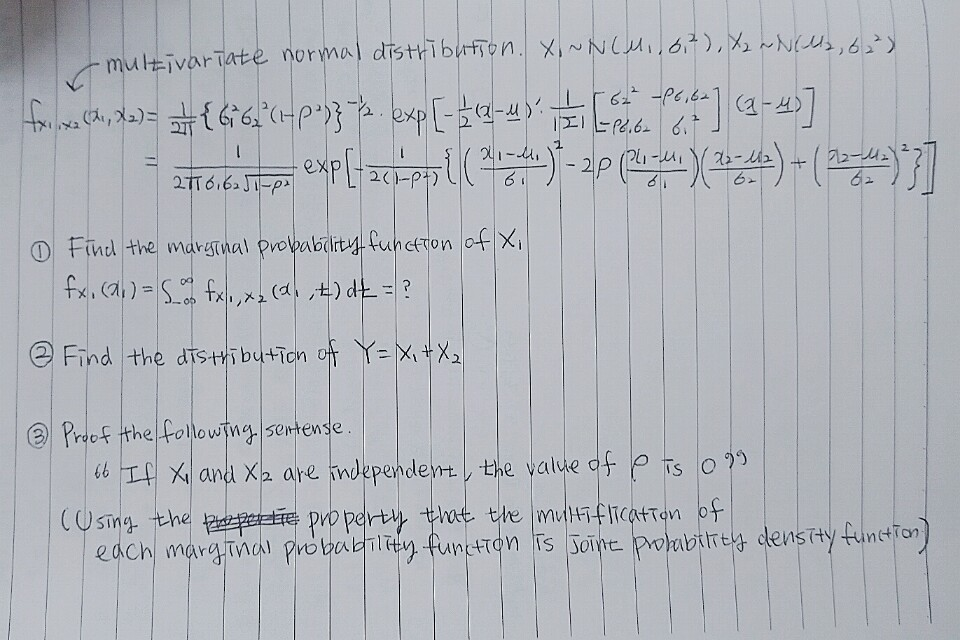 multivariate normal distribution. X₁ ~ N(μ₁, σ₁²), X₂ ~ N(μ₂, σ₂²)
f_{X₁,X₂}(x₁, x₂) = 1/2π {σ₁²σ₂²(1-ρ²)}^{-1/2} · exp[-1/2 (x-μ)' 1/|Σ| [σ₂² -ρσ₁σ₂; -ρσ₁σ₂ σ₁²] (x-μ)]
= 1/(2πσ₁σ₂√(1-ρ²)) exp[-1/(2(1-ρ²)) {((x₁-μ₁)/σ₁)² - 2ρ((x₁-μ₁)/σ₁)((x₂-μ₂)/σ₂) + ((x₂-μ₂)/σ₂)²}]
① Find the marginal probability function of X₁
f_{X₁}(x₁) = ∫_{-∞}^{∞} f_{X₁,X₂}(x₁, t) dt = ?
② Find the distribution of Y = X₁ + X₂
③ Proof the following sentence.
“ If X₁ and X₂ are independent, the value of ρ is 0 ”
(Using the property that the multiflication of
each marginal probability function is joint probability density function)